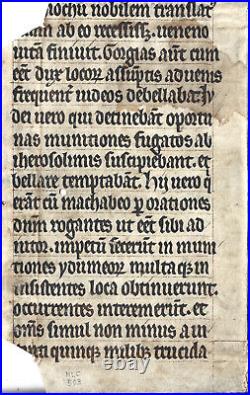 iochū nobilem translat
um ab eo recessisꝫ. ueneno
uitā finiuit. Gorgias aūt cum
eēt dux locoꝝ assūptis aduenis
frequent̄ iudeos debellabat. Iu
dei uero qui detinebāt oportu
nas munitiones fugatos ab
iherosolimis suscipiebant. et
bellare temptabāt. Hij uero q̄
erāt cū machabeo ꝑ orationes
dn̄m rogantes ut eēt sibi ad
iutor. impetū fecerūt in muni
tiones ydumeoꝝ multa qꝫ in
insistentes loca obtinuerunt.
occurrentes interemerūt. et
om̄s simul non minus a ui
quinqꝫ milibꝫ trucida
NLC
503